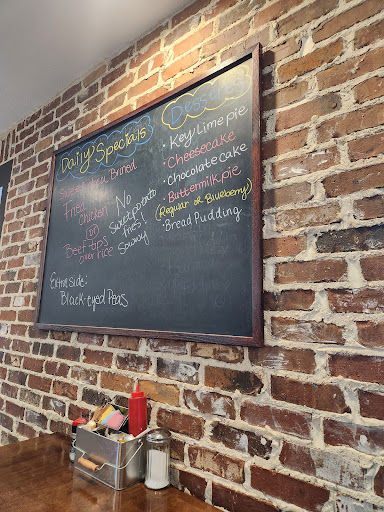 Daily Specials
Sweet Tea Brined
Fried
Chicken
(or)
Beef tips
over rice
No
Sweet potato
fries!
Sorry
Extra side:
Black-eyed Peas
Desserts
• Key lime pie
• Cheesecake
• Chocolate Cake
• Buttermilk pie
(Regular or Blueberry)
• Bread Pudding